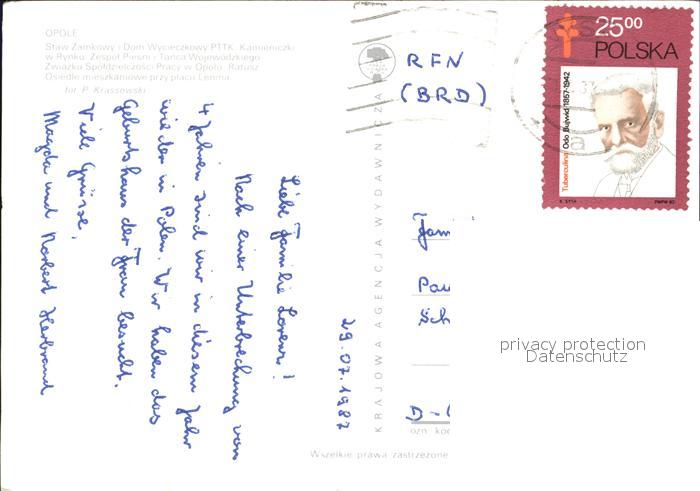 OPOLE
Staw Zamkowy i Dom Wycieczkowy PTTK. Kamieniczki
w Rynku. Zespół Pieśni i Tańca Wojewódzkiego
Związku Spółdzielczości Pracy w Opolu. Ratusz
Osiedle mieszkaniowe przy placu Lenina
fot. P. Krassowski
29.07.1987
Liebe Familie Lorenz!
Nach einer Unterbrechung von
4 Jahren sind wir in diesem Jahr
wieder in Polen. Wir haben das
Geburtshaus der Frau besucht.
Viele Grüsse,
Magda und Norbert Herbrand
KRAJOWA AGENCJA WYDAWNICZA
RFN
(BRD)
Fam
Pau
Sch
D-
ozn. kod
Wszelkie prawa zastrzeżone
2500
POLSKA
Tuberculina Odo Bujwid 1857-1942
PWPW 82
privacy protection
Datenschutz